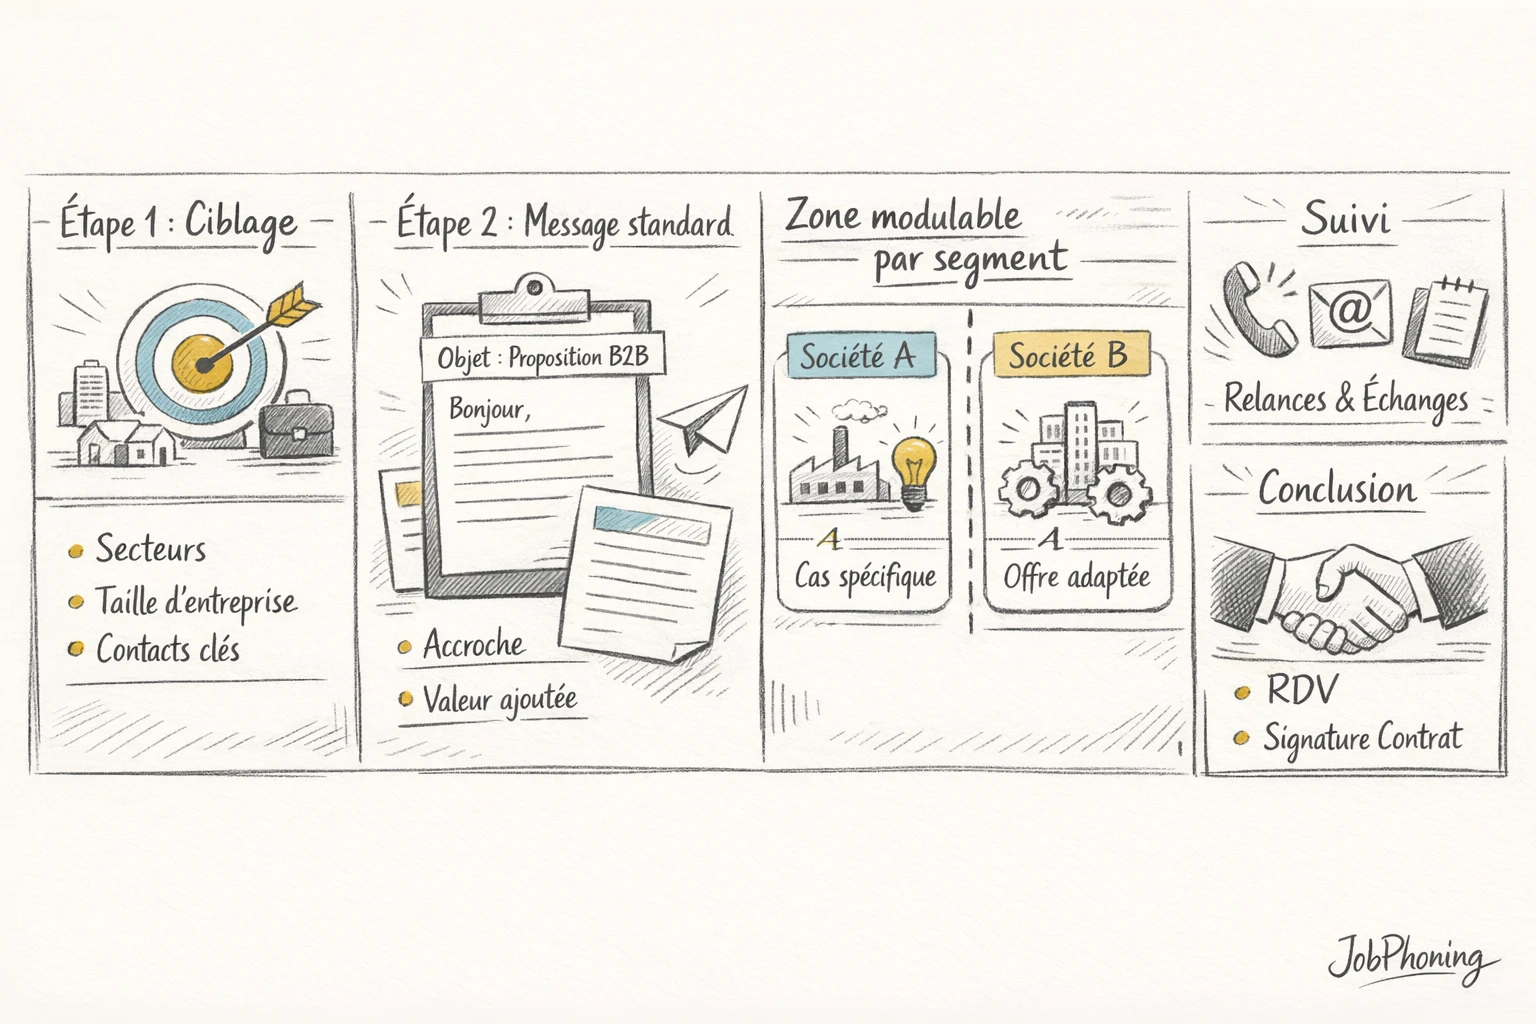 Étape 1 : Ciblage
Secteurs
Taille d'entreprise
Contacts clés
Étape 2 : Message standard
Objet : Proposition B2B
Bonjour,
Accroche
Valeur ajoutée
Zone modulable
par segment
Société A
A
Cas spécifique
Société B
A
Offre adaptée
Suivi
@
Relances & Échanges
Conclusion
RDV
Signature Contrat
JobPhoning